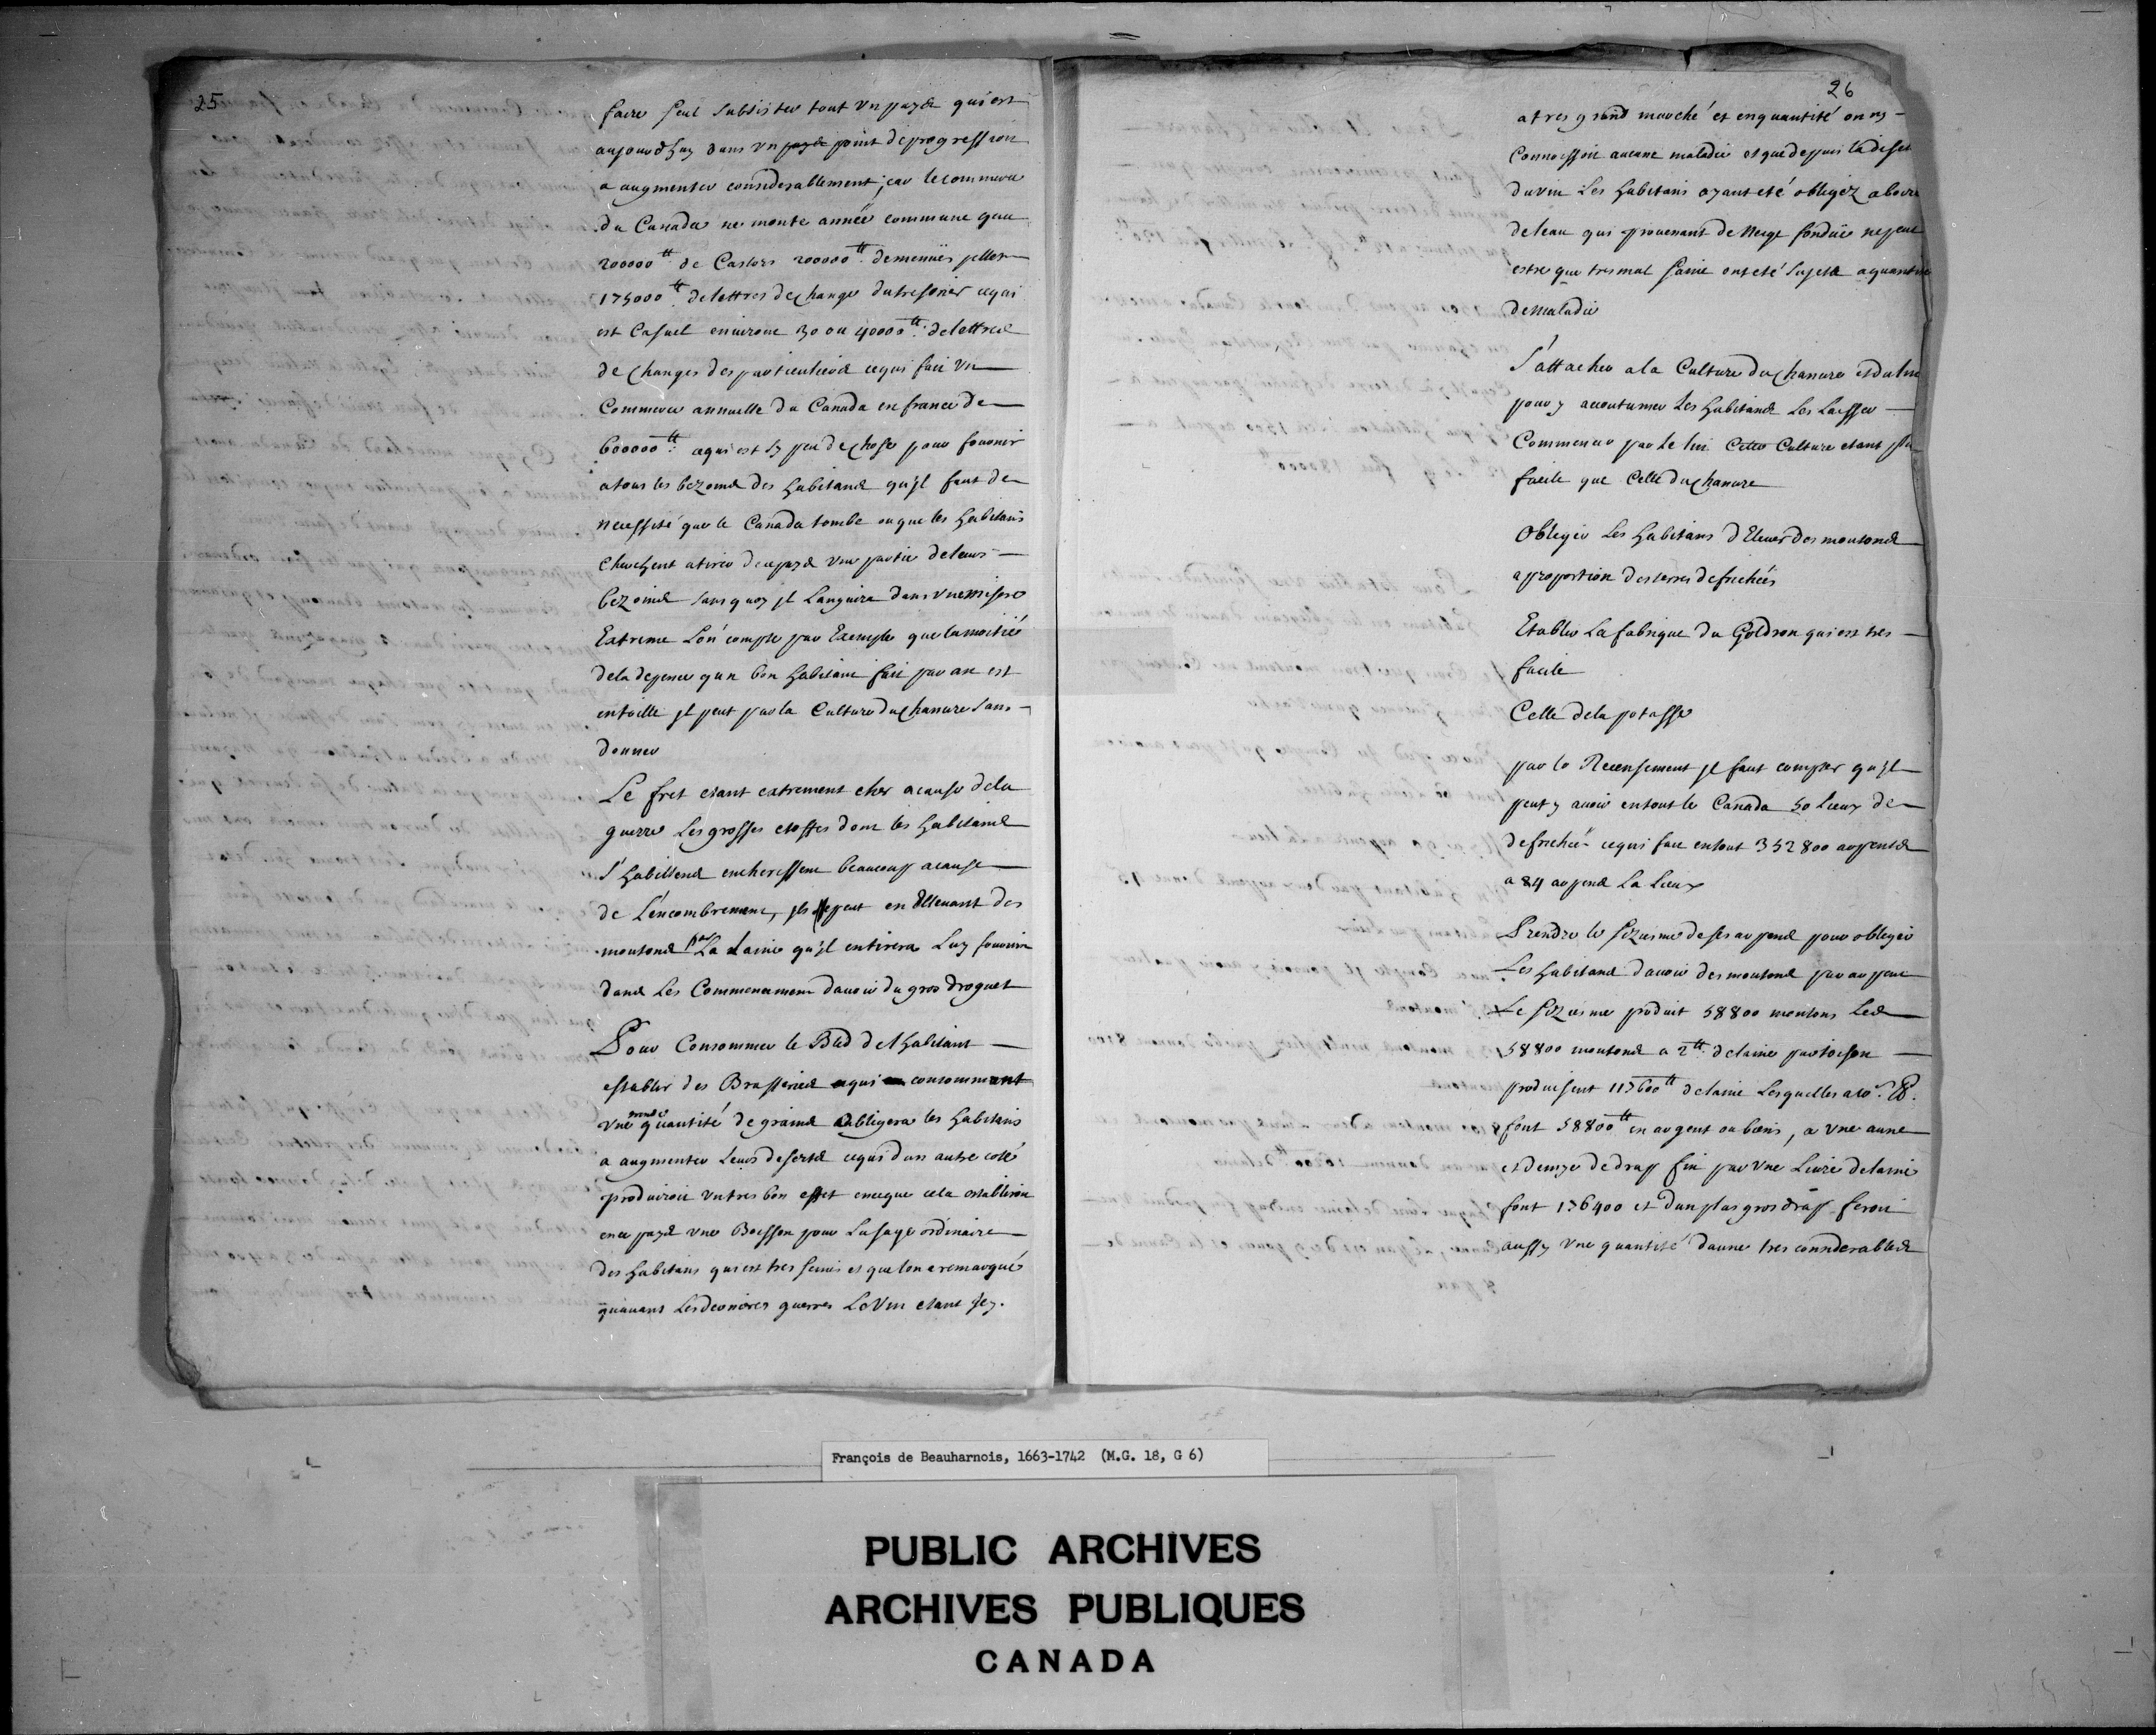 25
faire seul subsister tout un pays qui est
aujourdhuy dans un pays point de progression
a augmenter considerablement; car le commerce
du Canada ne monte année commune qua
200000tt de Castors 200000tt de menües pelles
175000tt de lettres de change du tresorier ce qui
est Casuel environ 30 ou 40000tt de lettres
de changes des particuliers ce qui fait un
Commerce annuelle du Canada en france de
600000tt ce qui est sy peu de chose pour fournir
a tous les bezoins des habitans qu'jl faut de
necessité que le Canada tombe ou que les habitans
cherchent a tirer du pays une partie de leurs
bezoins sans quoy jl Languira dans une misere
Extreme L'on compte par Exemple que la moitié
de la depence qun bon habitant fait par an est
en toille jl peut par la Culture du chanvre s'en
donner
Le fret etant extrement cher a cause de la
guerre Les grosses etoffes dont les habitans
s'habillent encherissent beaucoup a cause
de L'encombrement, jls peut en Ellevant des
moutons par La Laine qu'jl en tirera Luy fournir
dans Les Commencemens davoir du gros droguet
Pour Consommer le Bled de l'habitant
establir des Brasseries ce qui consomment
une grande quantité de grains obligera les habitans
a augmenter Leurs deserts ce qui d'un autre costé
produiroit un tres bon effet en ce que cela establiroit
en ce pays une Boisson pour L'usage ordinaire
des habitans qui est tres saine et que lon a remarqué
qu'avant Les dernieres guerres Le Vin etant jcy
26
a tres grand marché et en quantité on ny
Connoissoit aucune maladie et que depuis la diset
du vin Les habitans ayant eté obligez a boire
de leau qui provenant de Neige fondüe ne peut
estre que tres mal saine ont eté sujets a quantité
de maladie
S'attacher a la Culture du chanvre et du lin
pour y accoutumer Les habitans Les Laisser
Commencer par le lin Cette Culture etant plu
facile que Celle du chanvre
Obliger Les habitans d'Elever des moutons
a proportion des terres defrichées
Etablir La fabrique du Goldron qui est tres
facile
Celle de la potasse
par le Recensement jl faut compter qu'jl
peut y avoir en tout le Canada 50 Lieux de
defriché ce qui fait en tout 352800 arpents
a 84 arpens La Lieux
Prendre le sizieme de ses arpens pour obliger
Les habitans d'avoir des moutons par arpent
Le sizieme produit 58800 moutons Les
58800 moutons a 2tt de laine par toison
produisent 117600tt de laine Lesquelles a 10s
font 58800tt en argent ou biens, a une aune
et demye de drap fin par une Livre de laine
font 176400 et d'un plus gros drap feroit
aussy une quantité d'aunes tres considerables
François de Beauharnois, 1663-1742 (M.G. 18, G 6)
PUBLIC ARCHIVES
ARCHIVES PUBLIQUES
CANADA